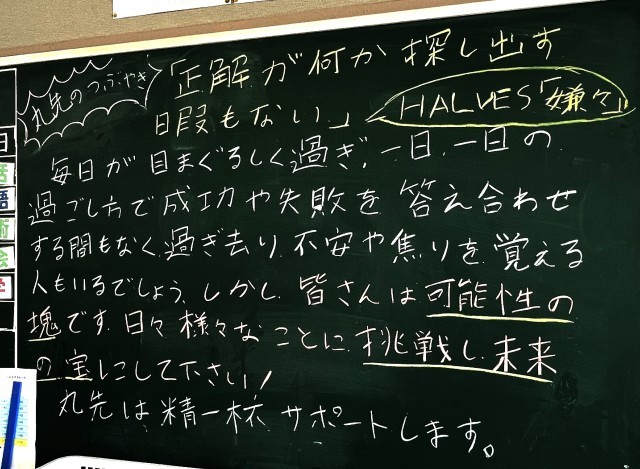 丸先のつぶやき
「正解が何か探し出す
日暇もない。」
HALVES「嫌々」
毎日が目まぐるしく過ぎ、一日、一日の
過ごし方で成功や失敗を答え合わせ
する間もなく、過ぎ去り、不安や焦りを覚える
人もいるでしょう、しかし、皆さんは可能性の
塊です。日々様々なことに挑戦し、未来
の宝にして下さい!
丸先は精一杯サポートします。
日
語
術
会
学